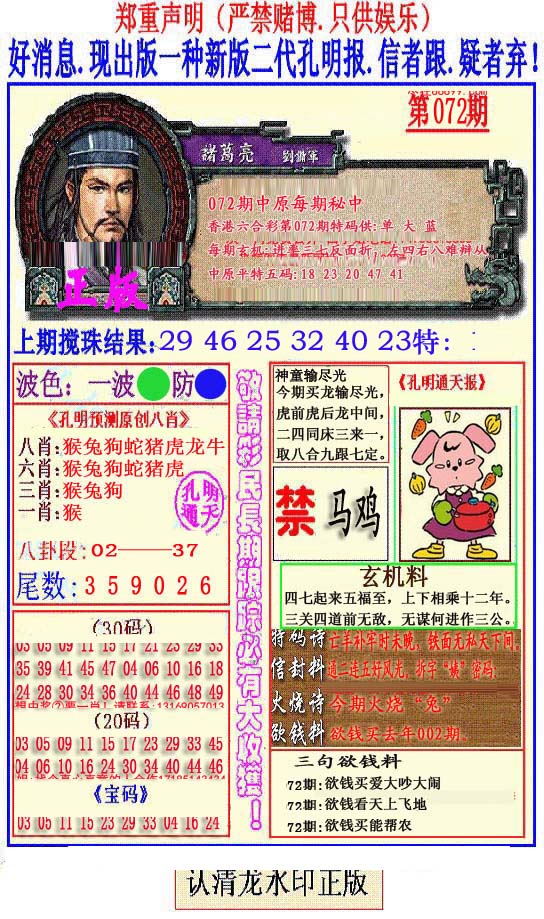 郑重声明（严禁赌博.只供娱乐）
好消息.现出版一种新版二代孔明报.信者跟.疑者弃!
第072期
諸葛亮 劉備軍
072期中原每期秘中
香港六合彩第072期特码供:单 大 蓝
中原平特五码:18 23 20 47 41
正版
上期搅珠结果:29 46 25 32 40 23特:
波色: 一波 防
《孔明预测原创八肖》
八肖:猴兔狗蛇猪虎龙牛
六肖:猴兔狗蛇猪虎
三肖:猴兔狗
一肖:猴
孔明
通天
八卦段:02——37
尾数:3 5 9 0 2 6
(30码)
03 05 09 11 15 17 21 23 29 33
35 39 41 45 47 04 06 10 16 18
24 28 30 34 36 40 44 46 48 49
(20码)
03 05 09 11 15 17 23 29 33 45
04 06 10 16 24 30 34 40 44 46
《宝码》
03 05 11 15 23 29 33 04 16 24
敬請彩民長期跟踪必有大收獲!
神童输尽光
今期买龙输尽光,
虎前虎后龙中间,
二四同床三来一,
取八合九跟七定。
《孔明通天报》
禁 马鸡
玄机料
四七起来五福至，上下相乘十二年。
三关四道前无敌，无谋何进作三公。
特码诗 亡羊补牢时未晚，铁面无私天下间。
信封料 通二连五好风光，拆字“姨”密码:
火烧诗 今期火烧“兔”
欲钱料 欲钱买去年002期。
三句欲钱料
72期:欲钱买爱大吵大闹
72期:欲钱看天上飞地
72期:欲钱买能帮农
认清龙水印正版